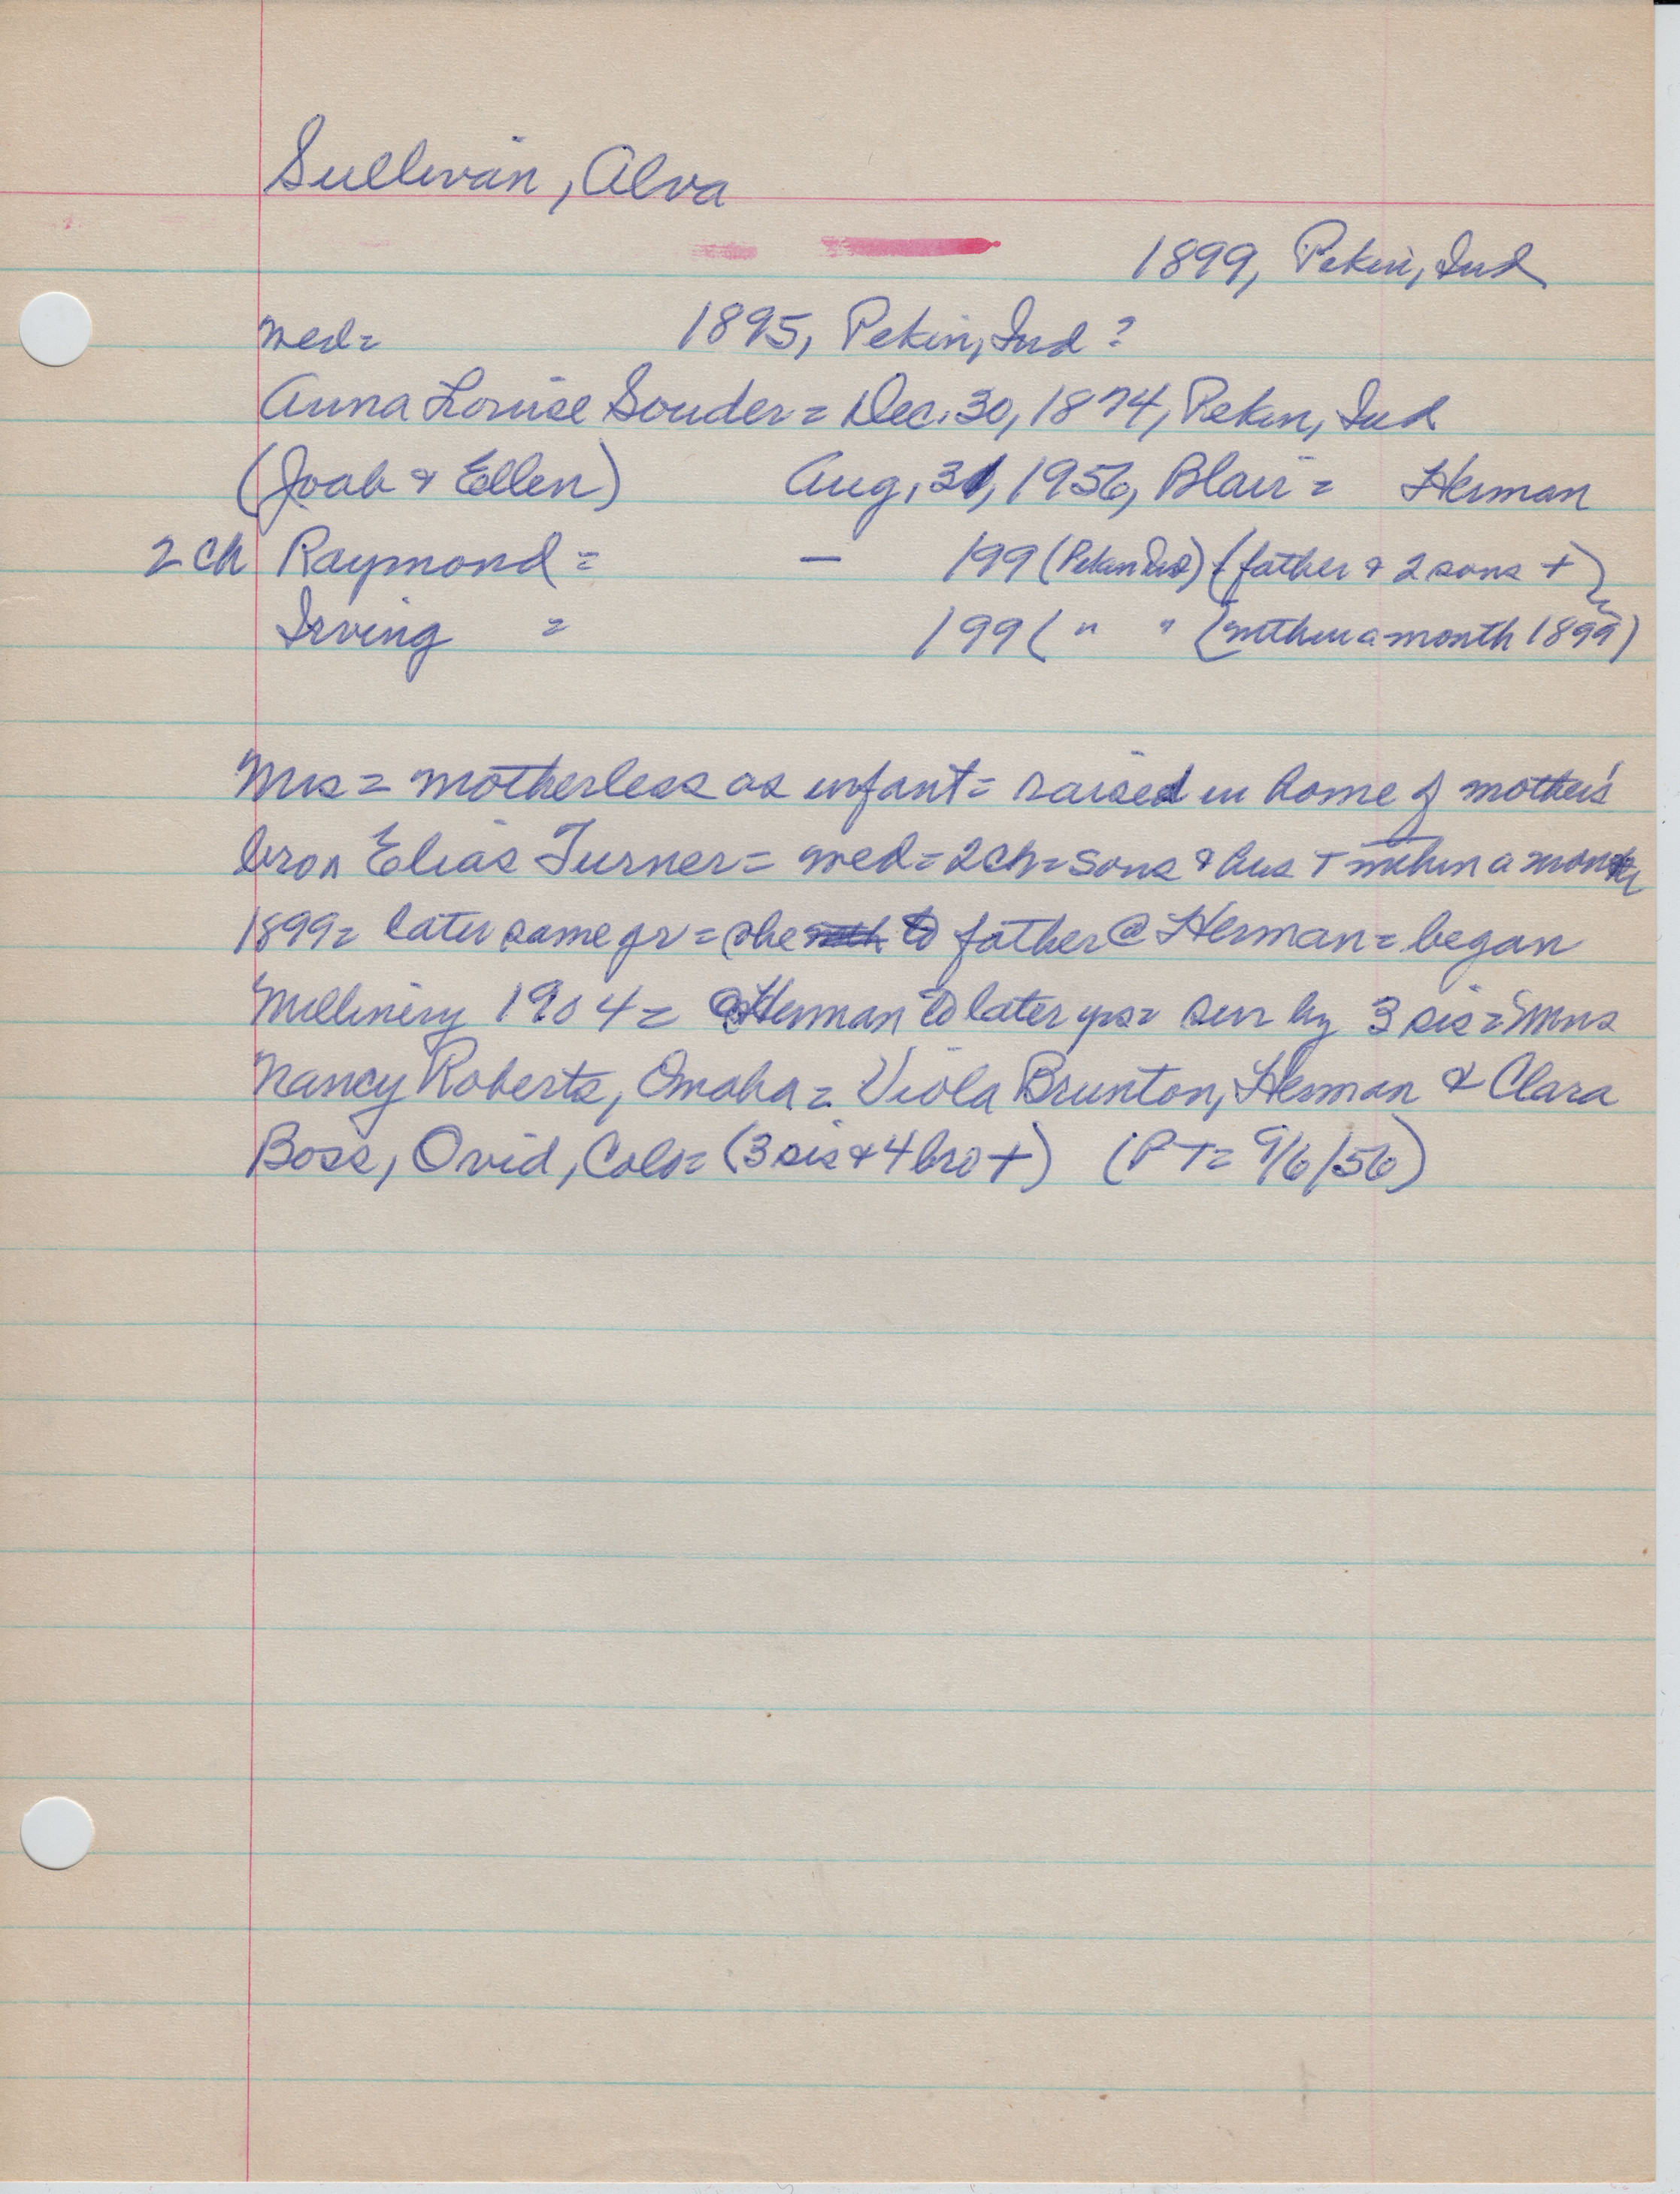 Sullivan, Alva
1899, Pekin, Ind
med= 1895, Pekin, Ind?
Anna Louise Souder= Dec. 30, 1874, Pekin, Ind
(Joab & Ellen) Aug, 31, 1956, Blair= Herman
2 Ch Raymond= — 199 (Pekin Ind) (father & 2 sons +)
Irving = 199 ( " " (within a month 1899)
Mrs = motherless as infant= raised in home of mother's
bro Elias Turner= med=2Ch=sons & hus + within a month
1899= later same yr=she to father @ Herman=began
Millinery 1904= @Herman to later yrs= sur by 3 sis=Mms
Nancy Roberts, Omaha= Viola Brunton, Herman & Clara
Boss, Ovid, Colo= (3 sis & 4 bro +) (PT= 9/6/56)